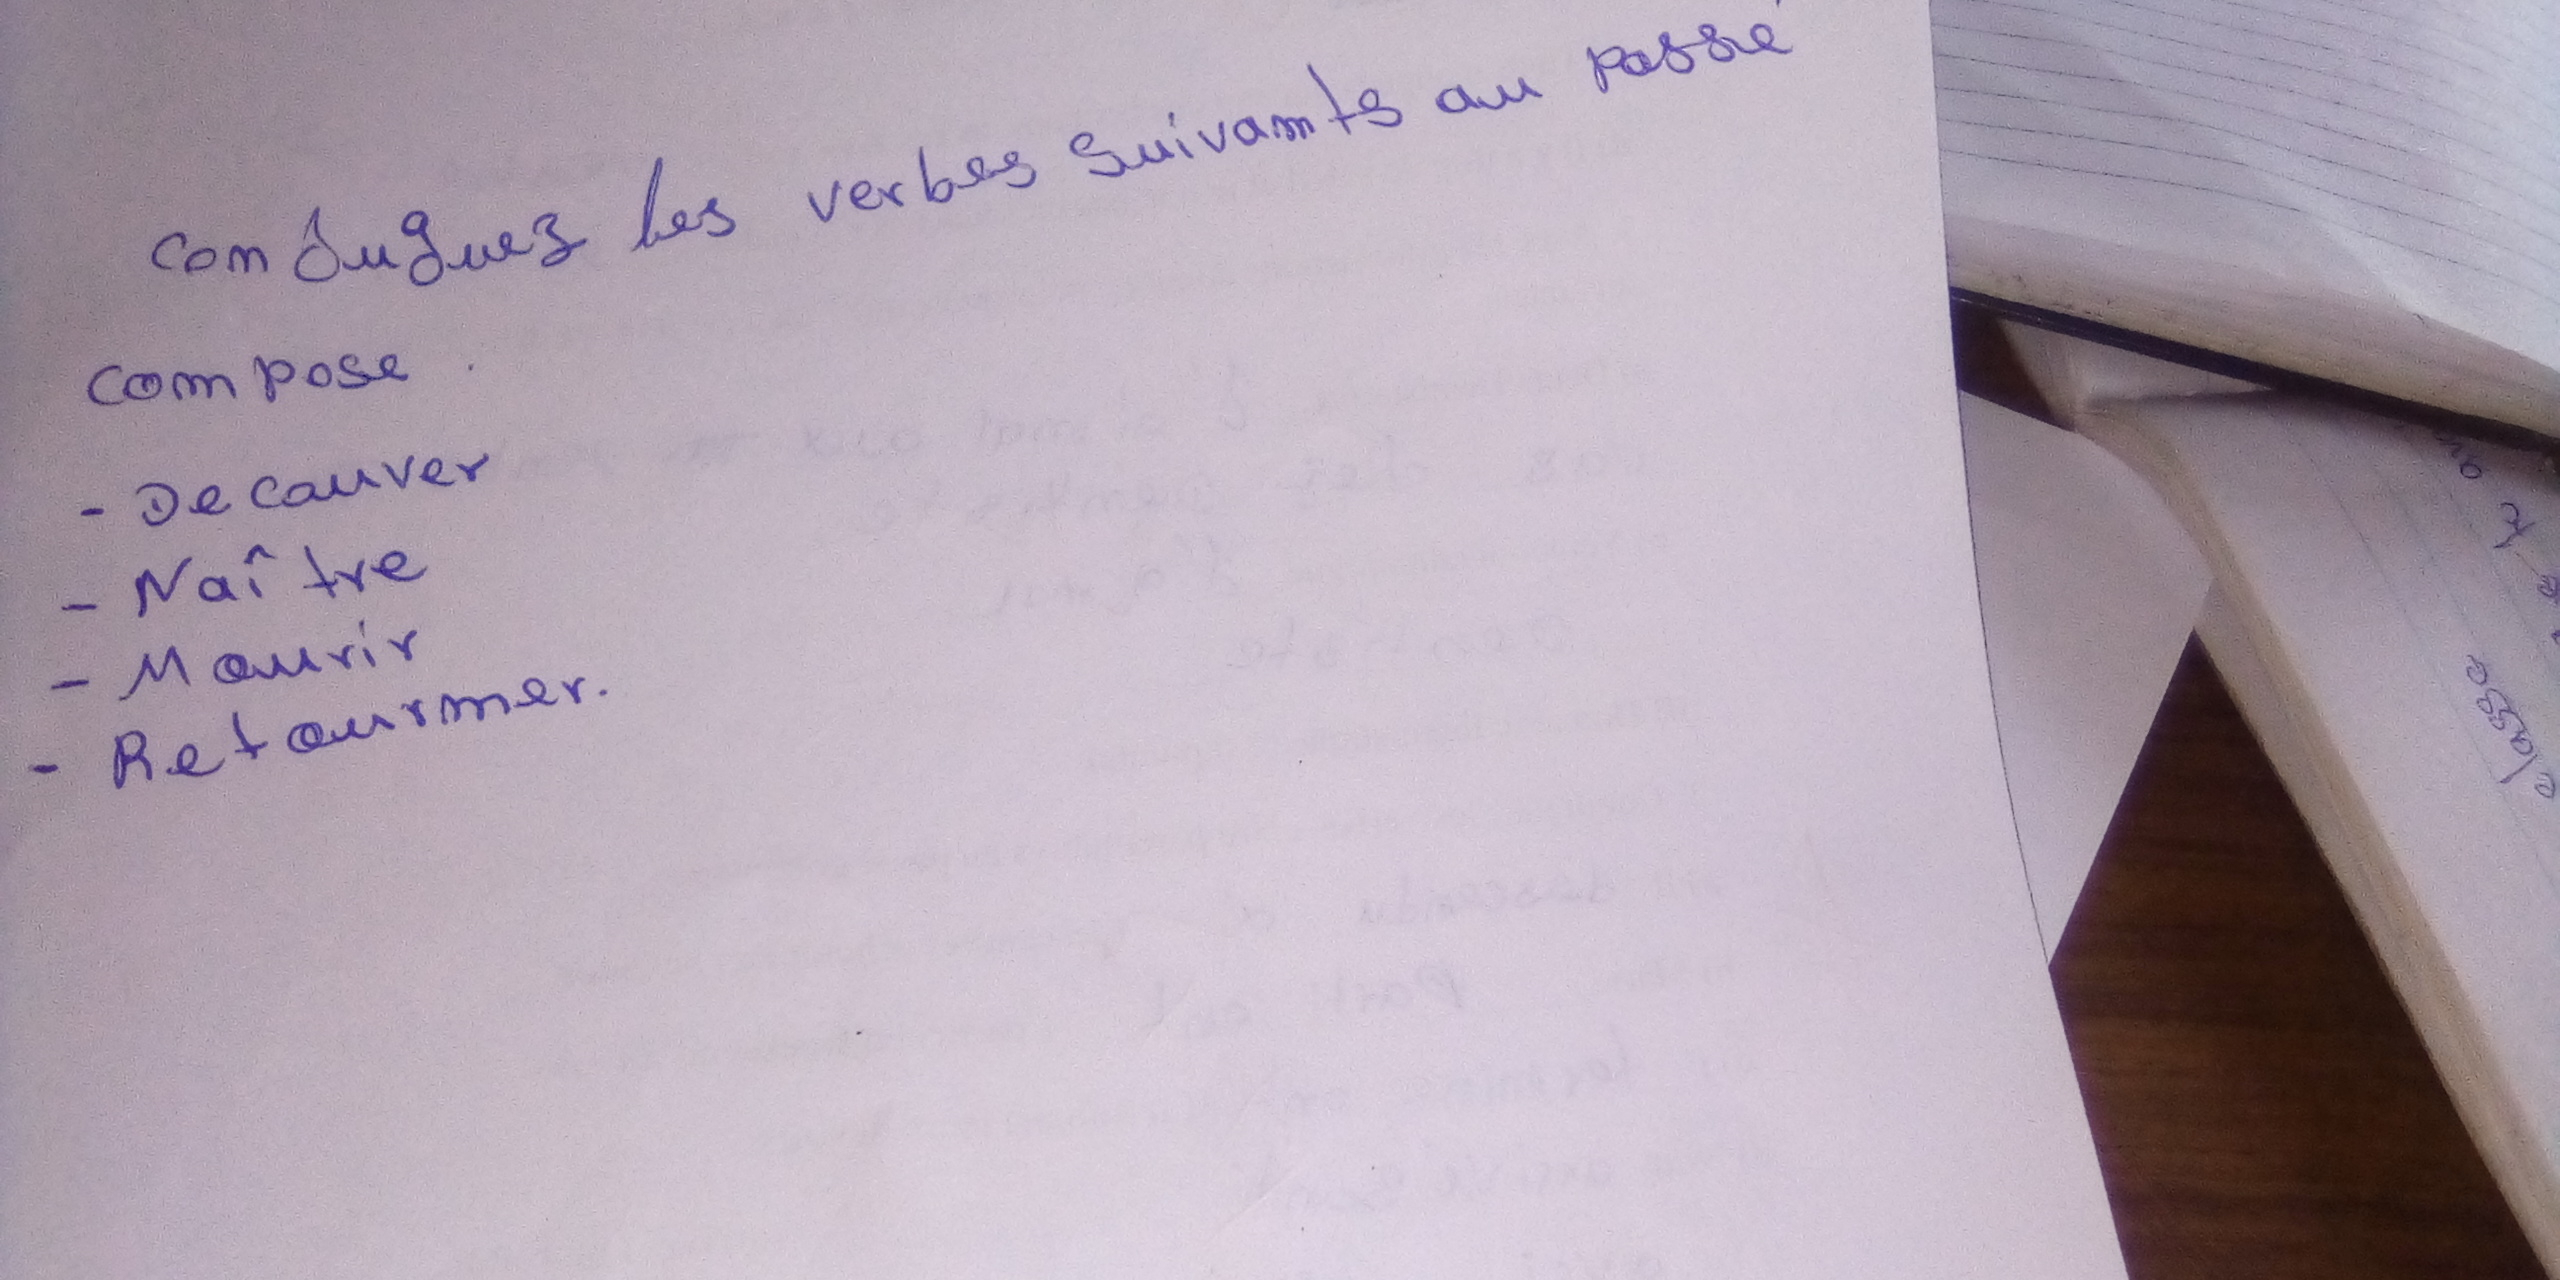 Conjuguez les verbes suivants au passé
compose.
- Decouver
- Naître
- Mourir
- Retourner.
classe